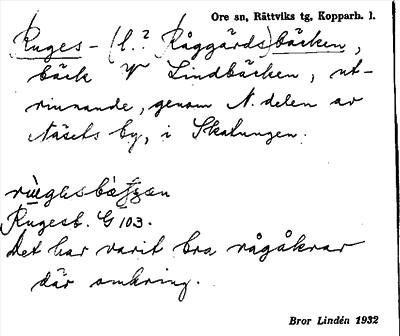 Ore sn, Rättviks tg, Kopparb. l.
Ruges- (l.? Råggärds)bäcken,
bäck V Lindbäcken, ut-
rinnande, genom N. delen av
Näsets by, i Skatungen.
Rugesb. G 103.
Det har varit bra rågåkrar
där omkring.
Bror Lindén 1932